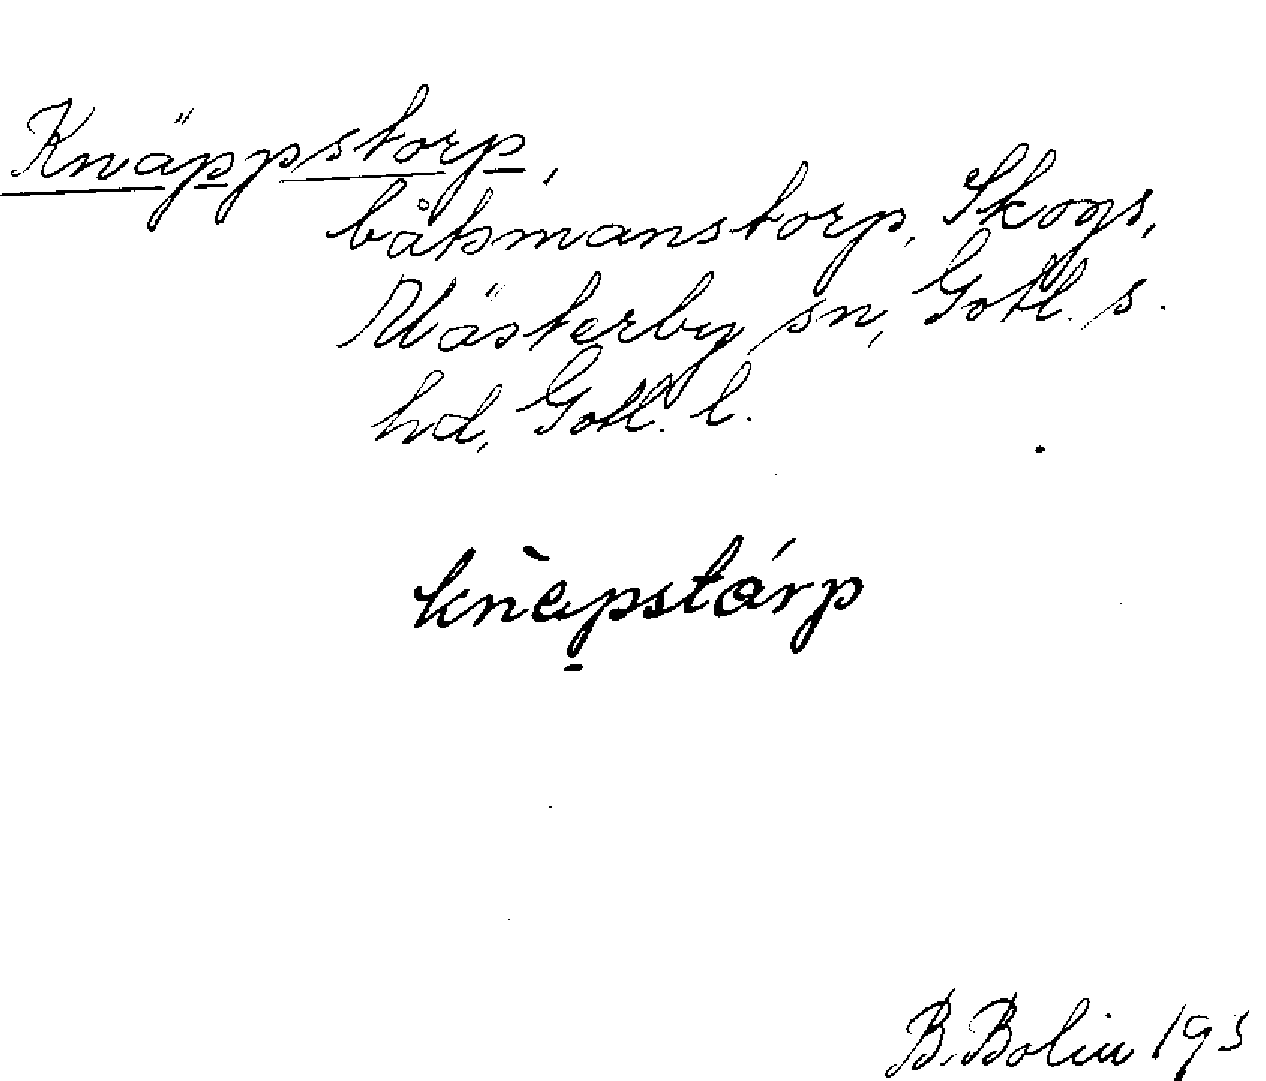 Knäppstorp,
båtsmanstorp, Skogs,
Västerby sn, Gotl. s.
hd, Gotl. l.
knæ̀pstárp
B. Bolin 193